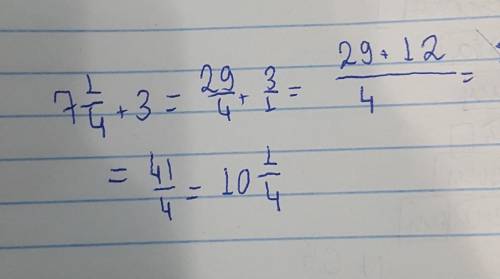 7 1/4 + 3 = 29/4 + 3/1 = (29 + 12)/4 =
= 41/4 = 10 1/4